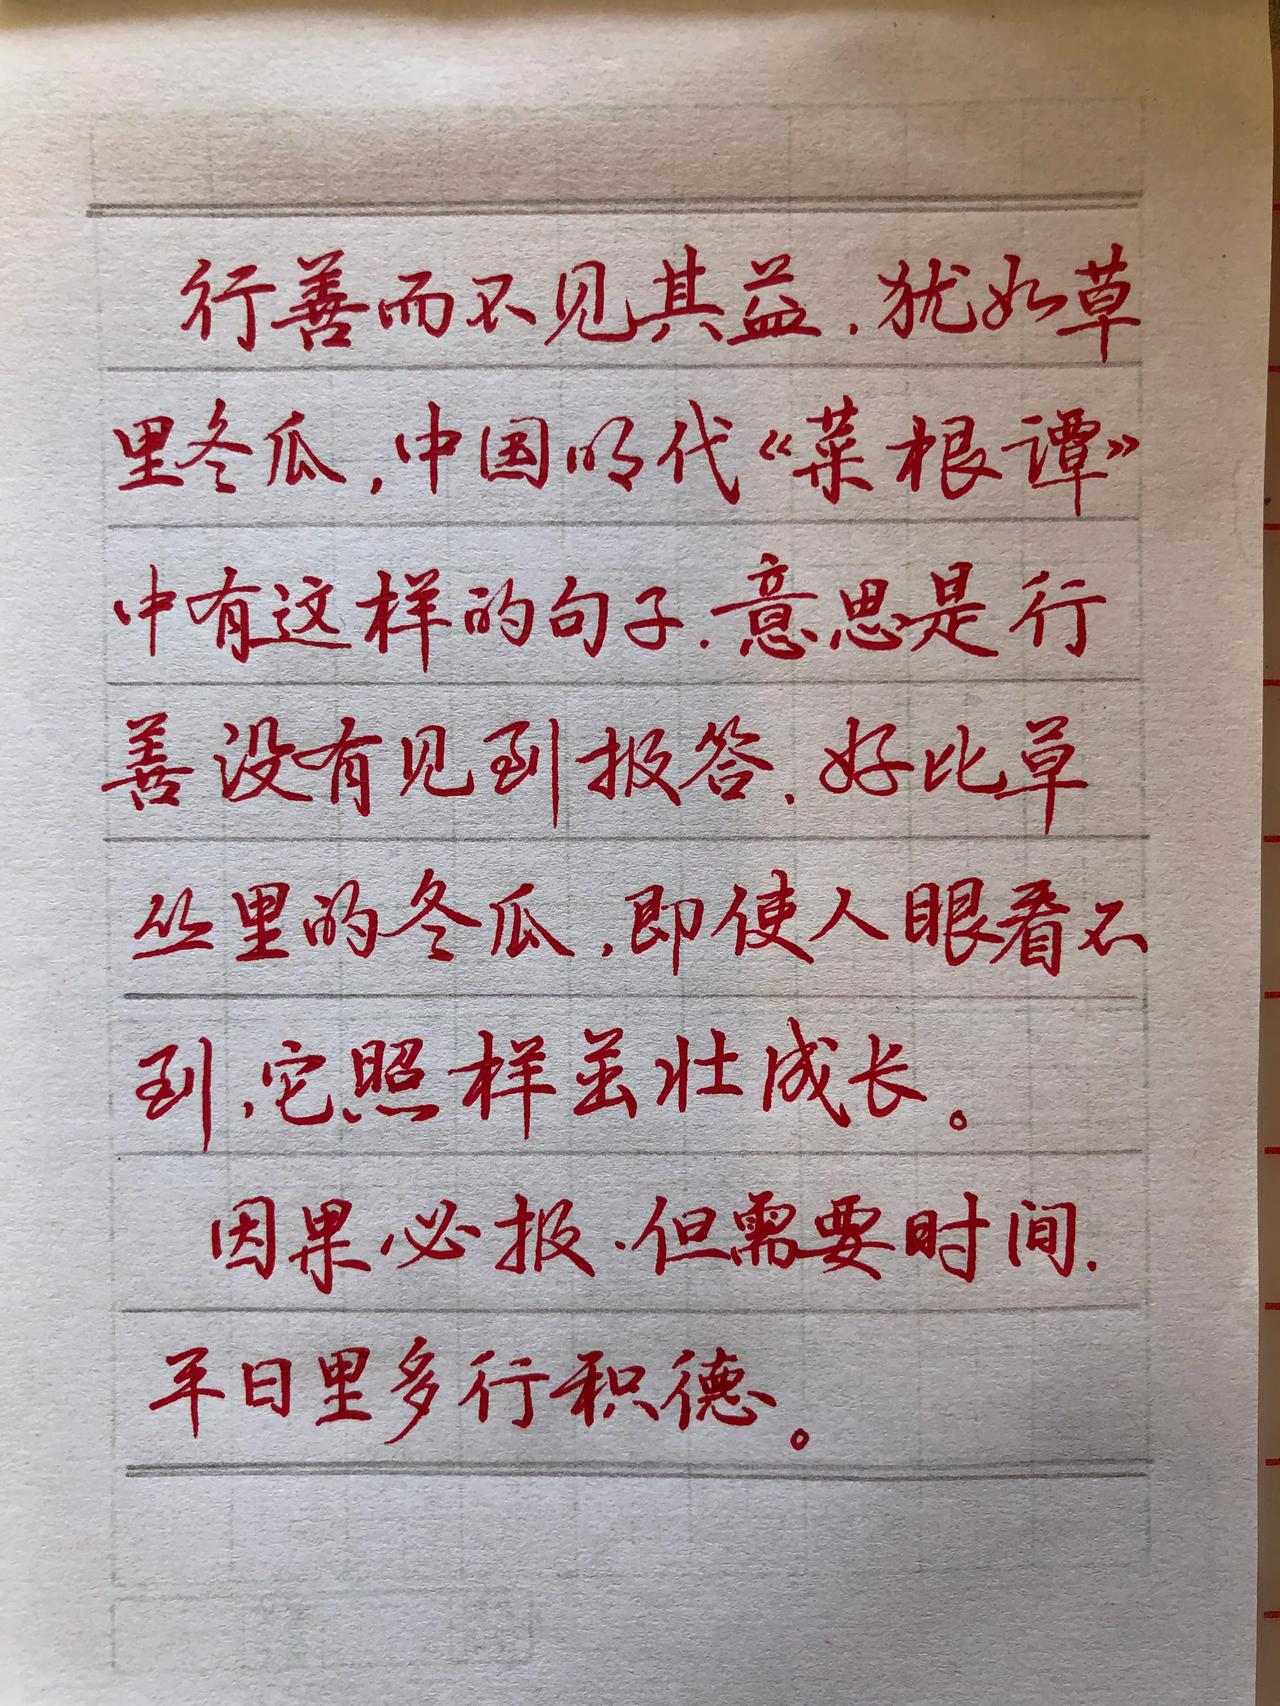 行善而不见其益，犹如草
里冬瓜，中国明代《菜根谭》
中有这样的句子，意思是行
善没有见到报答，好比草
丛里的冬瓜，即使人眼看不
到，它照样茁壮成长。
因果必报，但需要时间，
平日里多行积德。